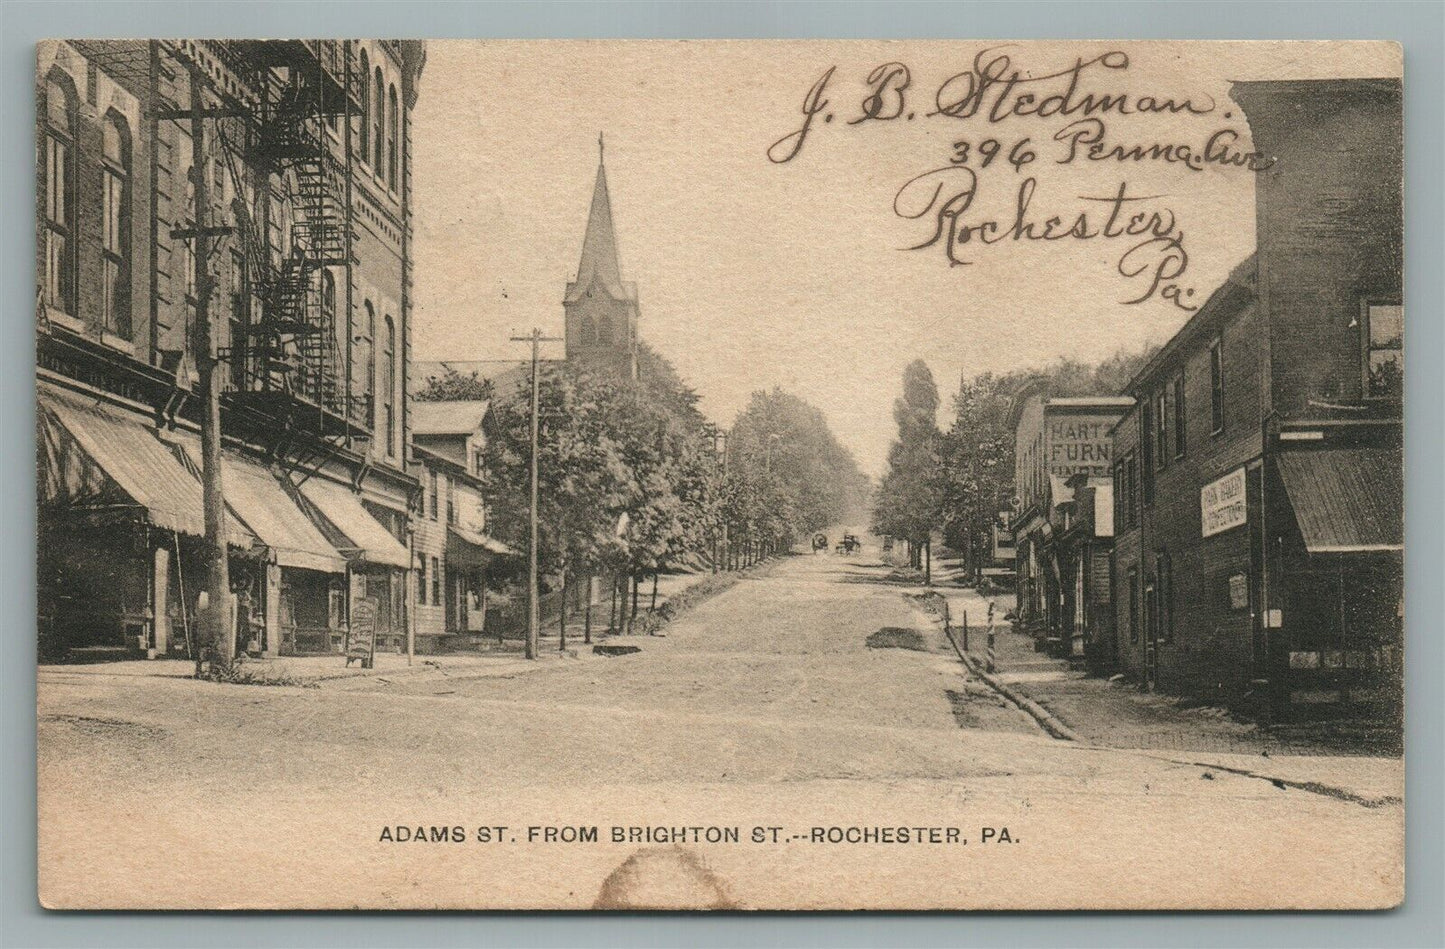 J. B. Stedman.
396 Penna. Ave
Rochester,
Pa.
HARTZ
FURN
BAKERY
ADAMS ST. FROM BRIGHTON ST.--ROCHESTER, PA.